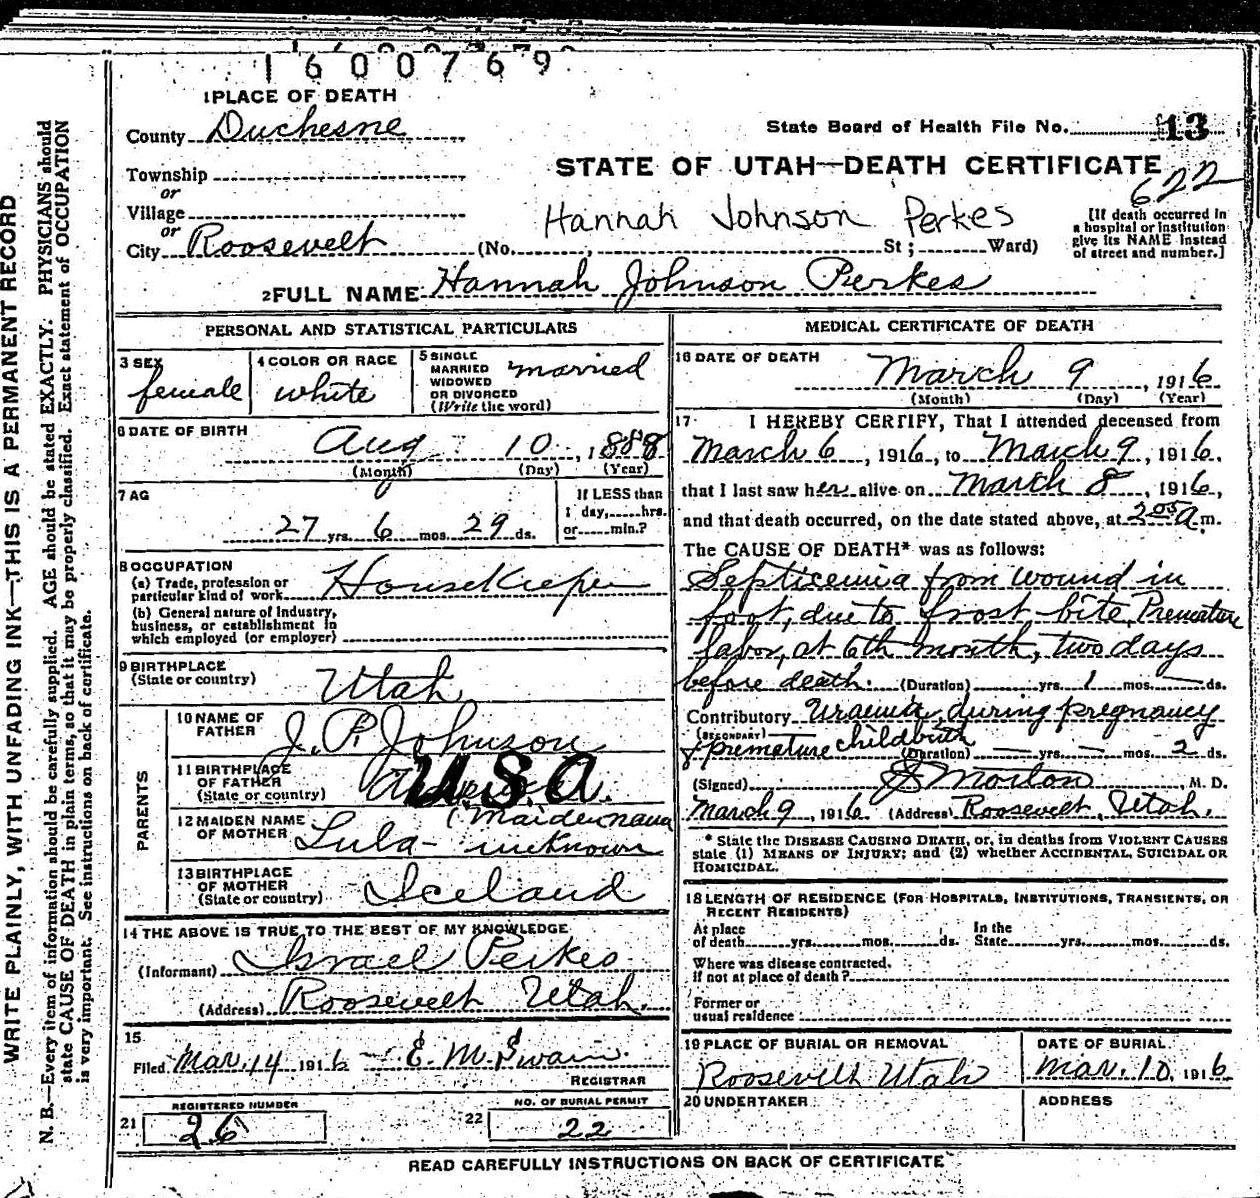 1600769
1 PLACE OF DEATH
County Duchesne
State Board of Health File No. 13
Township
or
STATE OF UTAH—DEATH CERTIFICATE
622
Village
or
Hannah Johnson Perkes
City Roosevelt (No. St; Ward)
[If death occurred in
a hospital or institution
give its NAME instead
of street and number.]
2 FULL NAME Hannah Johnson Perkes
PERSONAL AND STATISTICAL PARTICULARS
3 SEX
female
4 COLOR OR RACE
white
5 SINGLE
MARRIED
WIDOWED
OR DIVORCED
(Write the word)
married
6 DATE OF BIRTH
Aug 10, 1888
(Month) (Day) (Year)
7 AG
27 yrs. 6 mos. 29 ds.
If LESS than
1 day, hrs.
or min.?
8 OCCUPATION
(a) Trade, profession or
particular kind of work Housekeeper
(b) General nature of Industry,
business, or establishment in
which employed (or employer)
9 BIRTHPLACE
(State or country) Utah
PARENTS
10 NAME OF
FATHER J. P. Johnson
11 BIRTHPLACE
OF FATHER
(State or country) U.S.A.
12 MAIDEN NAME
OF MOTHER Lula - unknown
(maiden name
13 BIRTHPLACE
OF MOTHER
(State or country) Iceland
14 THE ABOVE IS TRUE TO THE BEST OF MY KNOWLEDGE
(Informant) Israel Perkes
(Address) Roosevelt Utah.
15
Filed Mar. 14 1916 E. M. Swain.
REGISTRAR
REGISTERED NUMBER
21 26
NO. OF BURIAL PERMIT
22 22
MEDICAL CERTIFICATE OF DEATH
16 DATE OF DEATH
March 9, 1916
(Month) (Day) (Year)
17 I HEREBY CERTIFY, That I attended deceased from
March 6, 1916, to March 9, 1916.
that I last saw her alive on March 8, 1916,
and that death occurred, on the date stated above, at 2 05 a.m.
The CAUSE OF DEATH* was as follows:
Septicemia from wound in
foot, due to frost-bite, Premature
labor, at 6th month, two days
before death. (Duration) yrs. 1 mos. ds.
Contributory Uraemia, during pregnancy
(SECONDARY)
& premature childbirth
(Duration) — yrs. — mos. 2 ds.
(Signed) J Morton M. D.
March 9, 1916 (Address) Roosevelt, Utah.
* State the DISEASE CAUSING DEATH, or, in deaths from VIOLENT CAUSES
state (1) MEANS OF INJURY; and (2) whether ACCIDENTAL, SUICIDAL OR
HOMICIDAL.
18 LENGTH OF RESIDENCE (FOR HOSPITALS, INSTITUTIONS, TRANSIENTS, OR
RECENT RESIDENTS)
At place
of death yrs. mos. ds.
In the
State yrs. mos. ds.
Where was disease contracted.
if not at place of death?
Former or
usual residence
19 PLACE OF BURIAL OR REMOVAL
Roosevelt Utah
DATE OF BURIAL
Mar. 10, 1916
20 UNDERTAKER
ADDRESS
READ CAREFULLY INSTRUCTIONS ON BACK OF CERTIFICATE
WRITE PLAINLY, WITH UNFADING INK—THIS IS A PERMANENT RECORD
N. B.—Every item of information should be carefully supplied. AGE should be stated EXACTLY. PHYSICIANS should
state CAUSE OF DEATH in plain terms, so that it may be properly classified. Exact statement of OCCUPATION
is very important. See instructions on back of certificate.